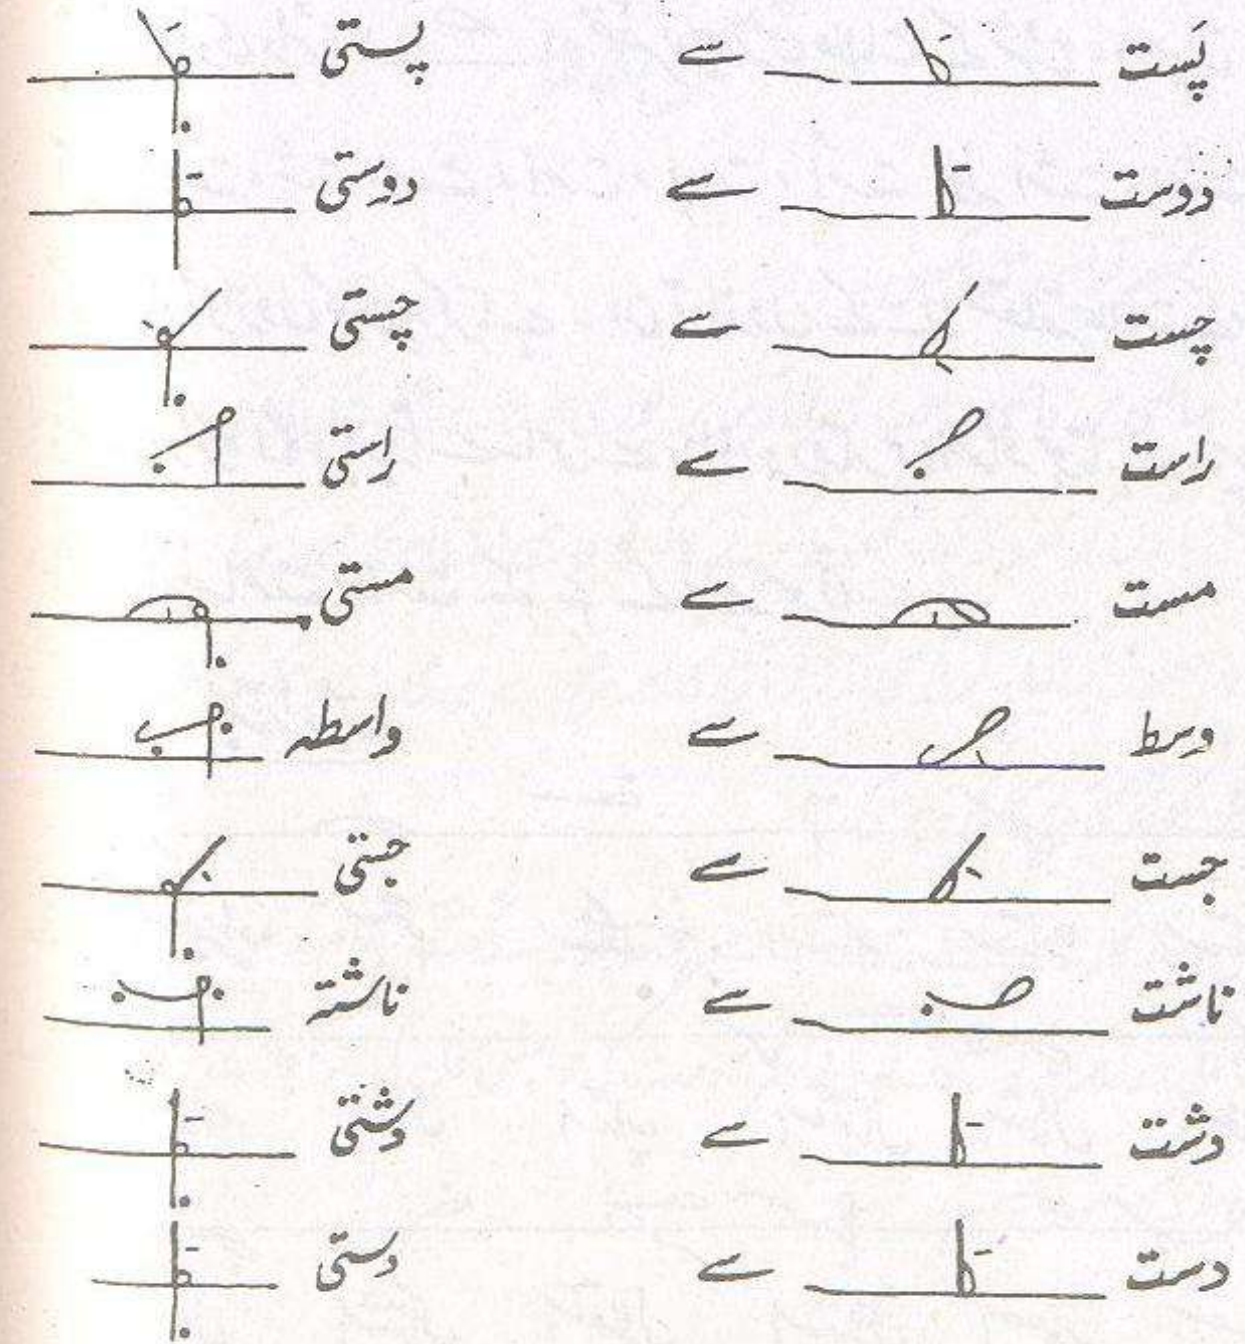 پَست سے پستی
دوست سے دوستی
چست سے چستی
راست سے راستی
مست سے مستی
وسط سے واسطہ
جست سے جستی
ناشت سے ناشتہ
دشت سے دشتی
دست سے دستی